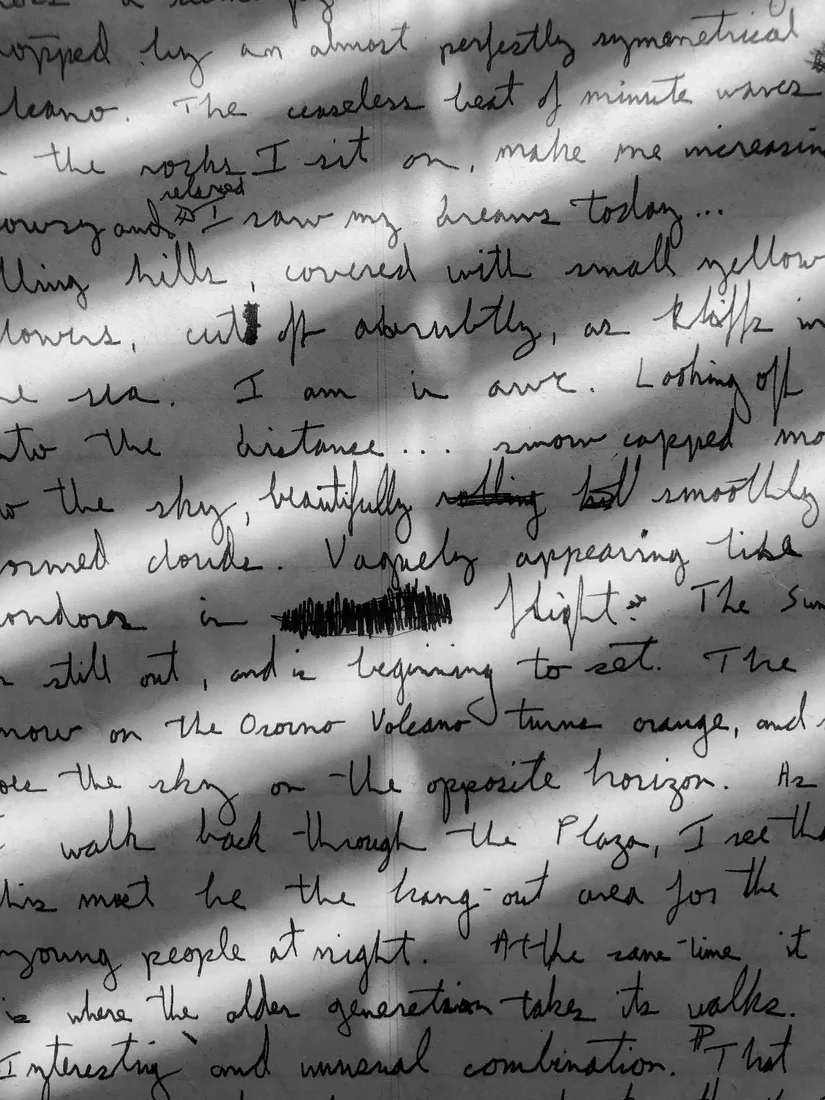 opped by an almost perfectly symmetrical
lcano. The ceaseless beat of minute waves
the rocks I sit on, make me increasin
relaxed
owsy and I saw my dreams today...
lling hills, covered with small yellow
lowers, cut off abrubtly, as kliffs in
he sea. I am in awe. Looking off
nto the distance... snow capped mo
w the sky, beautifully rolling smoothly
ormed clouds. Vaguely appearing like
ondors in flight. The Sun
still out, and is beginning to set. The
now on the Osorno Volcano turns orange, and s
oes the sky on the opposite horizon. As
I walk back through the Plaza, I see tha
his must be the hang-out area for the
young people at night. At the same-time it
is where the older generation takes its walks.
Interesting and unusual combination. That